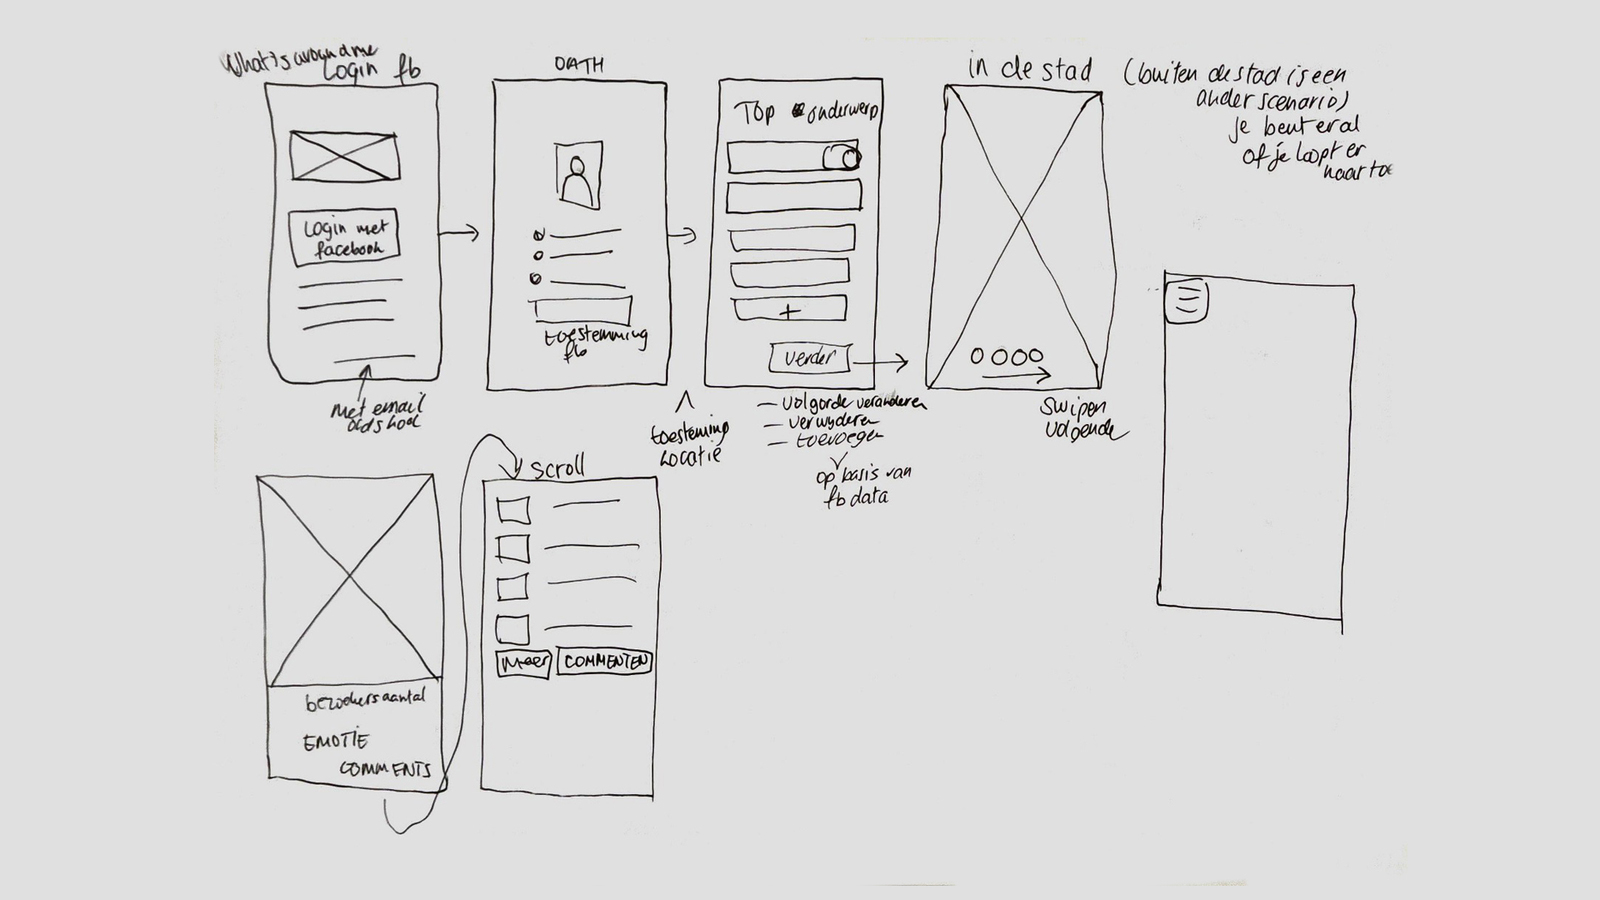 What's around me
Login fb
Login met
facebook
met email
oldskool
OATH
toestemming
fb
toesteming
Locatie
Top onderwerp
+
verder
– volgorde veranderen
– verwyderen
– toevoegen
op basis van
fb data
in de stad
(buiten de stad is een
ander scenario)
je bent er al
of je loopt er
naar toe
swipen
volgende
bezoekersaantal
EMOTIE
COMMENTS
scroll
Meer
COMMENTEN